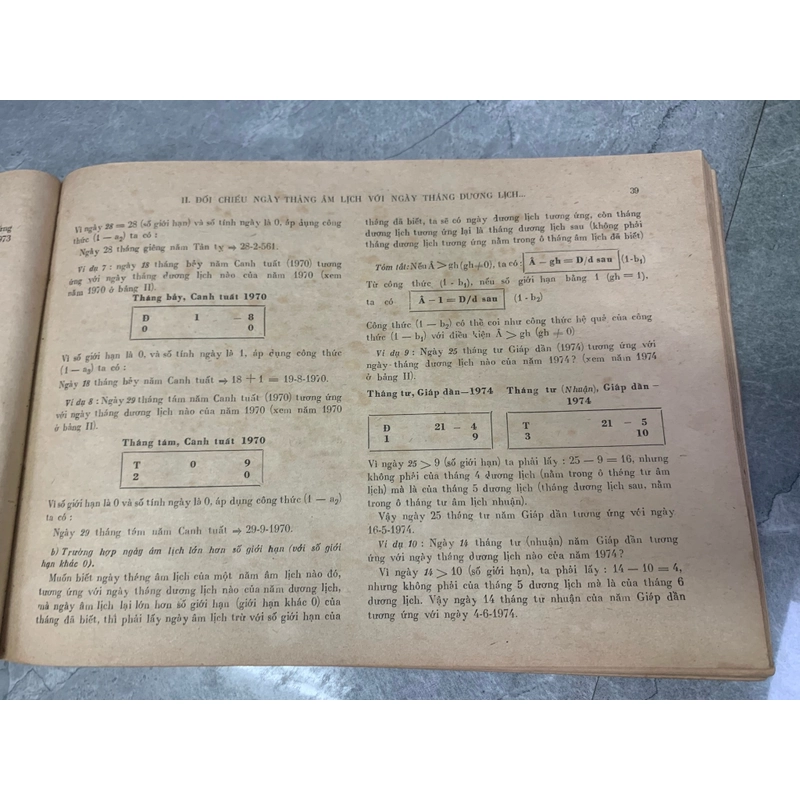 II. ĐỐI CHIẾU NGÀY THÁNG ÂM LỊCH VỚI NGÀY THÁNG DƯƠNG LỊCH...
39
973
Vì ngày 28 = 28 (số giới hạn) và số tính ngày là 0, áp dụng công
thức (1 — a₂) ta có :
Ngày 28 tháng giêng năm Tân tỵ ⇒ 28-2-561.
Ví dụ 7 : ngày 18 tháng bảy năm Canh tuất (1970) tương
ứng với ngày tháng dương lịch nào của năm 1970 (xem
năm 1970 ở bảng II).
Tháng bảy, Canh tuất 1970
Đ 1 — 8
0 0
Vì số giới hạn là 0, và số tính ngày là 1, áp dụng công thức
(1 — a₃) ta có :
Ngày 18 tháng bảy năm Canh tuất ⇒ 18 + 1 = 19-8-1970.
Ví dụ 8 : Ngày 29 tháng tám năm Canh tuất (1970) tương ứng
với ngày tháng dương lịch nào của năm 1970 (xem năm 1970
ở bảng II).
Tháng tám, Canh tuất 1970
T 0 9
2 0
Vì số giới hạn là 0 và số tính ngày là 0, áp dụng công thức (1 — a₂)
ta có :
Ngày 29 tháng tám năm Canh tuất ⇒ 29-9-1970.
b) Trường hợp ngày âm lịch lớn hơn số giới hạn (với số giới
hạn khác 0).
Muốn biết ngày tháng âm lịch của một năm âm lịch nào đó,
tương ứng với ngày tháng dương lịch nào của năm dương lịch,
mà ngày âm lịch lại lớn hơn số giới hạn (giới hạn khác 0) của
tháng đã biết, thì phải lấy ngày âm lịch trừ với số giới hạn của
tháng đã biết, ta sẽ có ngày dương lịch tương ứng, còn tháng
dương lịch tương ứng lại là tháng dương lịch sau (không phải
tháng dương lịch tương ứng nằm trong ô tháng âm lịch đã biết)
Tóm tắt: Nếu Â > gh (gh ≠ 0), ta có: Â — gh = D/d sau (1-b₁)
Từ công thức (1 - b₁), nếu số giới hạn bằng 1 (gh = 1),
ta có Â — 1 = D/d sau (1 - b₂)
Công thức (1 — b₂) có thể coi như công thức hệ quả của công
thức (1 — b₁) với điều kiện Â > gh (gh ≠ 0)
Ví dụ 9 : Ngày 25 tháng tư Giáp dần (1974) tương ứng với
ngày tháng dương lịch nào của năm 1974 ? (xem năm 1974
ở bảng II).
Tháng tư, Giáp dần—1974 Tháng tư (Nhuận), Giáp dần —
1974
Đ 21 — 4
1 9
T 21 — 5
3 10
Vì ngày 25 > 9 (số giới hạn) ta phải lấy : 25 — 9 = 16, nhưng
không phải của tháng 4 dương lịch (nằm trong ô tháng tư âm
lịch) mà là của tháng 5 dương lịch (tháng dương lịch sau, nằm
trong ô tháng tư âm lịch nhuận).
Vậy ngày 25 tháng tư năm Giáp dần tương ứng với ngày
16-5-1974.
Ví dụ 10 : Ngày 14 tháng tư (nhuận) năm Giáp dần tương
ứng với ngày tháng dương lịch nào của năm 1974 ?
Vì ngày 14 > 10 (số giới hạn), ta phải lấy : 14 — 10 = 4,
nhưng không phải của tháng 5 dương lịch mà là của tháng 6
dương lịch. Vậy ngày 14 tháng tư nhuận của năm Giáp dần
tương ứng với ngày 4-6-1974.